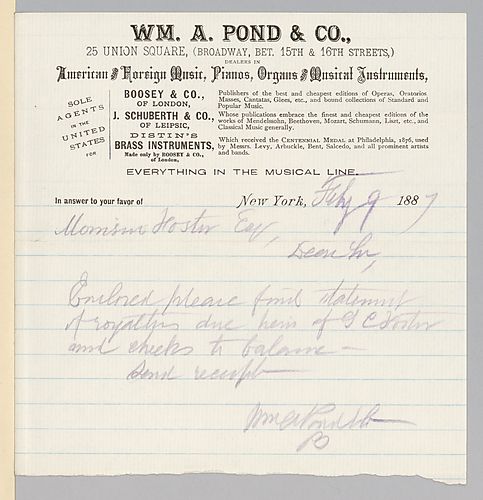 WM. A. POND & CO.,
25 UNION SQUARE, (BROADWAY, BET. 15TH & 16TH STREETS,)
DEALERS IN
American and Foreign Music, Pianos, Organs and Musical Instruments,
SOLE
AGENTS
IN THE
UNITED
STATES
FOR
BOOSEY & CO.,
OF LONDON,
Publishers of the best and cheapest editions of Operas, Oratorios
Masses, Cantatas, Glees, etc., and bound collections of Standard and
Popular Music.
J. SCHUBERTH & CO.,
OF LEIPSIC,
Whose publications embrace the finest and cheapest editions of the
works of Mendelssohn, Beethoven, Mozart, Schumann, Liszt, etc., and
Classical Music generally.
DISTIN'S
BRASS INSTRUMENTS,
Made only by BOOSEY & CO.,
of London,
Which received the CENTENNIAL MEDAL at Philadelphia, 1876, used
by Messrs. Levy, Arbuckle, Bent, Salcedo, and all prominent artists
and bands.
EVERYTHING IN THE MUSICAL LINE.
In answer to your favor of
New York, Feby 9 1887
Morrison Foster Esq,
Dear Sir,
Enclosed please find statement
of royalties due heirs of S C Foster
and checks to balance —
Send receipt —
Wm A Pond & Co